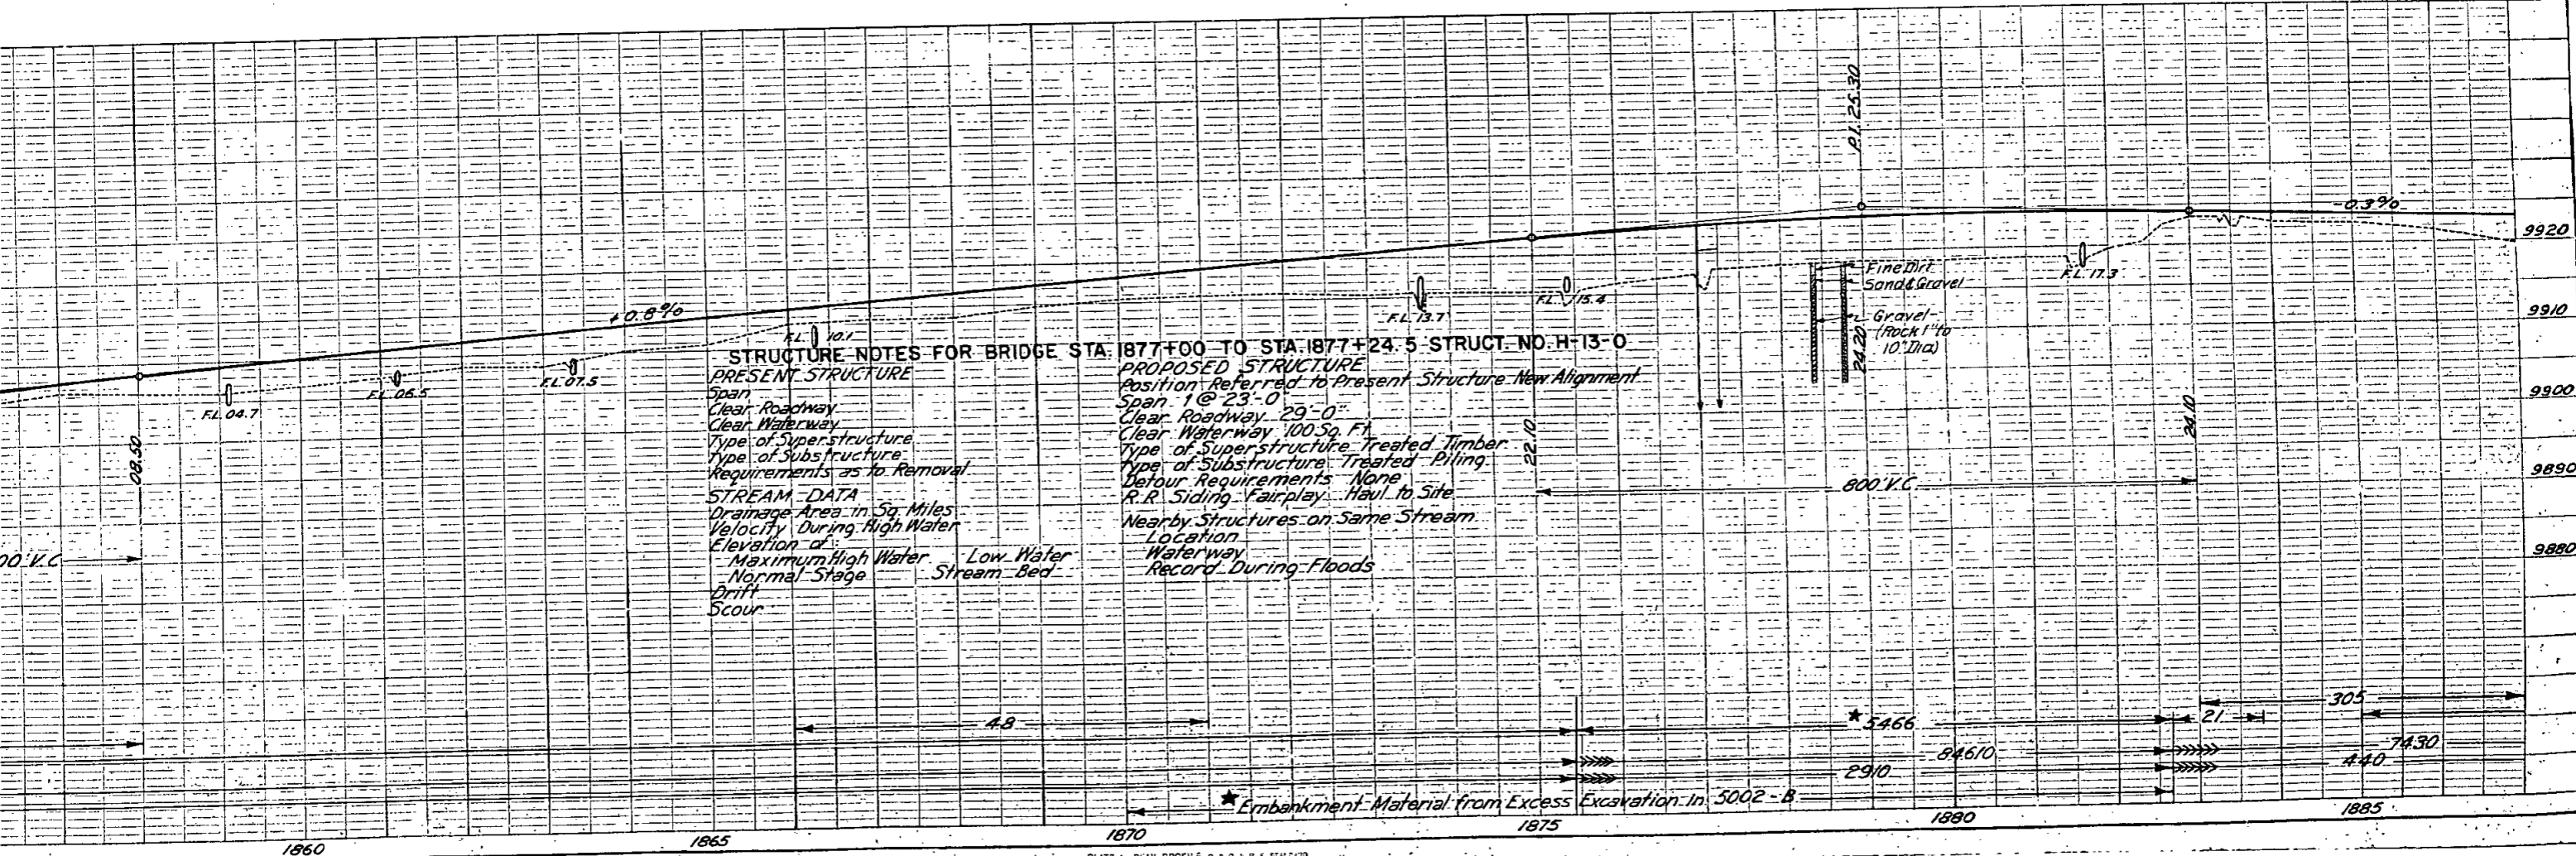 P.I. 25.30
-0.3%
9920
Fine Dirt
Sand & Gravel
F.L. 17.3
Gravel-
(Rock 1" to
10" Dia)
24.20
9910
+0.8%
F.L. 15.4
F.L. 13.7
F.L. 10.1
F.L. 07.5
F.L. 06.5
F.L. 04.7
08.50
STRUCTURE NOTES FOR BRIDGE STA. 1877+00 TO STA. 1877+24.5 STRUCT. NO. H-13-O
PRESENT STRUCTURE
Span
Clear Roadway
Clear Waterway
Type of Superstructure
Type of Substructure
Requirements as to Removal
STREAM DATA
Drainage Area in Sq. Miles
Velocity During High Water
Elevation of:
Maximum High Water Low Water
Normal Stage Stream Bed
Drift
Scour
PROPOSED STRUCTURE
Position Referred to Present Structure New Alignment
Span 1 @ 23'-0"
Clear Roadway 29'-0"
Clear Waterway 100 Sq. Ft.
Type of Superstructure Treated Timber
Type of Substructure Treated Piling
Detour Requirements None
R.R. Siding Fairplay Haul to Site
Nearby Structures on Same Stream
Location
Waterway
Record During Floods
22.10
24.10
9900
9890
9880
800' V.C.
00' V.C.
48
★5466
21
305
84610
7430
2910
440
★Embankment Material from Excess Excavation in 5002-B
1860
1865
1870
1875
1880
1885